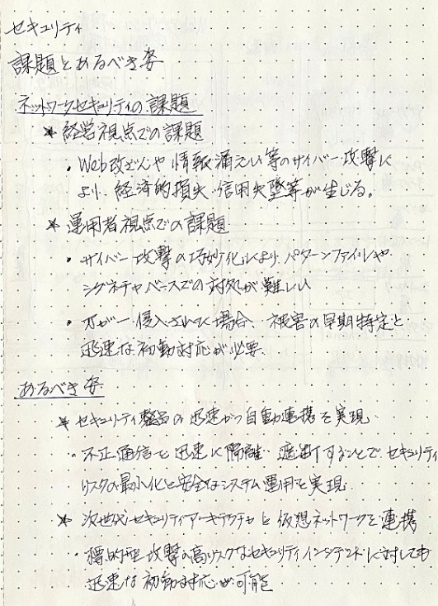 セキュリティ
課題とあるべき姿
ネットワークセキュリティの課題
* 経営視点での課題
・Web改ざんや情報漏えい等のサイバー攻撃に
より、経済的損失・信用失墜等が生じる。
* 運用者視点での課題
・サイバー攻撃の巧妙化により、パターンファイルや
シグネチャベースでの対処が難しい
・万が一侵入された場合、被害の早期特定と
迅速な初動対応が必要.
あるべき姿
* セキュリティ製品の迅速かつ自動連携を実現.
・不正通信を迅速に隔離・遮断することで、セキュリティ
リスクの最小化と安全なシステム運用を実現.
* 次世代セキュリティアーキテクチャと仮想ネットワークを連携
・標的型攻撃の高リスクなセキュリティインシデントに対しても
迅速な初動対応が可能